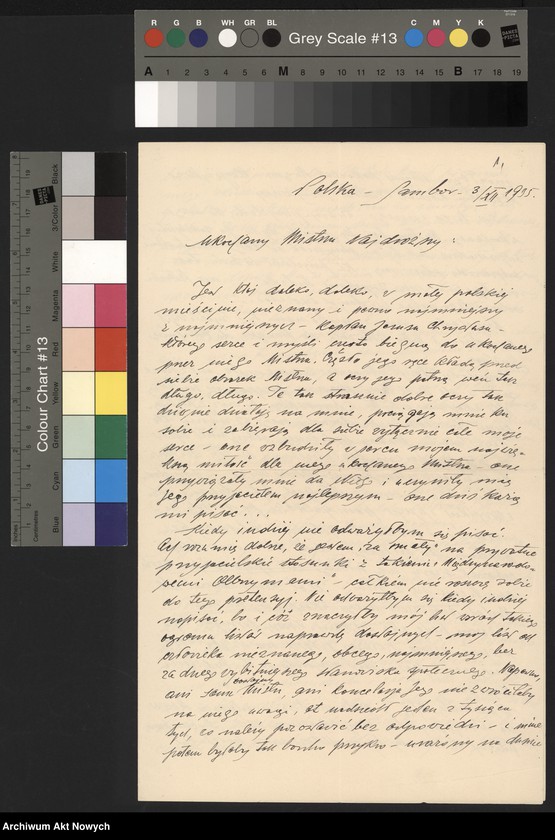 R G B WH GR BL Grey Scale #13 C M Y K
A 1 2 3 4 5 6 M 8 9 10 11 12 13 14 15 B 17 18 19
Colour Chart #13
Blue Cyan Green Yellow Red Magenta White 3/Color Black
Centimetres
1.
Polska – Sambor. 3/XII 1935.
Ukochany Mistrzu Najdroższy :
Jest ktoś daleko, daleko, w małej polskiej
mieścinie, nieznany i pewno najmniejszy
z najmniejszych – kapłan Jezusa Chrystusa –
którego serce i myśli często biegną do ukochanego
przez niego Mistrza. Często jego ręce kładą przed
siebie obrazek Mistrza, a oczy jego patrzą weń tak
długo, długo. Te tak strasznie dobre oczy tak
dziwnie działają na mnie, pociągają mnie ku
sobie i zabierają dla siebie wyłącznie całe moje
serce – one wzbudziły w sercu mojem
miłość dla mego ukochanego Mistrza – one
przywiązały mnie do Niego i uczyniły mię
Jego przyjacielem najlepszym – one dziś każą
mi pisać . . .
Kiedy indziej nie odważyłbym się pisać.
dobrze, że jestem „za mały" na prywatne
przyjacielskie stosunki z takiemi „Międzynarodo-
wemi Olbrzymami" – całkiem nie roszczę sobie
do tego pretensyj. Nie odważyłbym się kiedy indziej
napisać, bo i cóż znaczyłby mój list wśród takiego
ogromu listów naprawdę dostojnych – mój list od
człowieka nieznanego, obcego, najmniejszego, bez
żadnego wybitniejszego stanowiska społecznego. Napewno,
ani sam Mistrz, ani kancelarja Jego nie zwróciłaby
na niego uwagi, ot nadszedł jeden z tysiąca
tych, co należy pozostawić bez odpowiedzi – i mnie
potem byłoby tak bardzo przykro –
Archiwum Akt Nowych